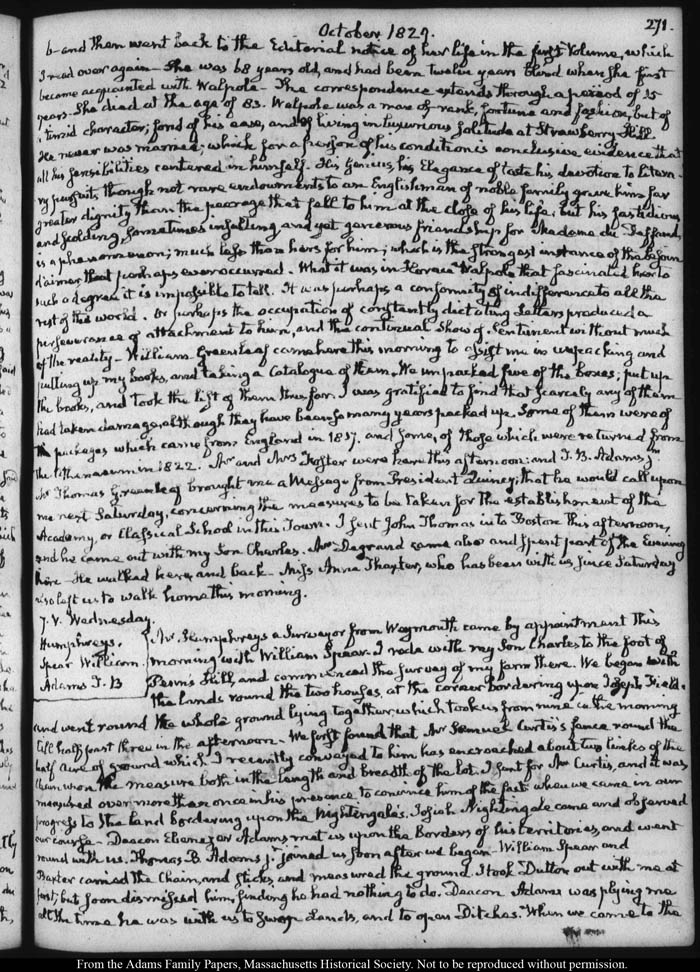 October 1829.
271.
6- and then went back to the Editorial notice of her life in the first Volume, which
I read over again— She was 68 years old, and had been twelve years blind when she first
became acquainted with Walpole— The correspondence extends through a period of 15
years. She died at the age of 83. Walpole was a man of rank, fortune and fashion, but of
timid character; fond of his ease, and of living in luxurious solitude at Strawberry Hill.
He never was married; which for a person of his condition is conclusive evidence that
all his sensibilities centered in himself. His Genius, his Elegance of taste his devotion to litera-
ry pursuits, though not rare endowments to an Englishman of noble family gave him far
greater dignity than the peerage that fell to him at the close of his life. but his fastidious
and scolding, sometimes insulting and yet generous friendship for Madame du Deffand,
is a phenomenon; much less than hers for him; which is the strongest instance of the besoin
d'aimer that perhaps ever occurred. What it was in Horace Walpole that fascinated her to
such a degree it is impossible to tell. It was perhaps a conformity of indifference to all the
rest of the world. Or perhaps the occupation of constantly dictating Letters produced a
perseverance of attachment to him, and the continual show of sentiment without much
of the reality— William Greenleaf came here this morning to assist me in unpacking and
putting up my books, and taking a Catalogue of them. We unpacked five of the Boxes; put up
the books, and took the list of them thus far. I was gratified to find that scarcely any of them
had taken damage, although they have been so many years packed up. Some of them were of
the packages which came from England in 1817. and some, of those which were returned from
the Athenaeum in 1822. Mr and Mrs Foster were here this afternoon: and T. B. Adams jr
Mr Thomas Greenleaf brought me a Message from President Quincy, that he would call upon
me next Saturday, concerning the measures to be taken for the establishment of the
Academy, or Classical School in this Town. I sent John Thomas in to Boston this afternoon,
and he came out with my Son Charles. Mr Degrand came also and spent part of the Evening
here— He walked here, and back— Miss Anna Thaxter, who has been with us since Saturday
also left us to walk home this morning.
7. V. Wednesday.
Humphreys.
Spear William.
Adams T. B
Mr Humphreys a Surveyor from Weymouth came by appointment this
morning with William Spear. I rode with my Son Charles to the foot of
Penn's Hill, and commenced the survey of my farm there. We began with
the lands round the two houses, at the corner bordering upon Joseph Field.
and went round the whole ground lying together, which took us from nine in the morning
till half past three in the afternoon. We first found that Mr Samuel Curtis's fence round the
half acre of ground which I recently conveyed to him has encroached about two links of the
Chain upon the measure both in the length and breadth of the lot. I sent for Mr Curtis, and it was
measured over more than once in his presence to convince him of the fact. when we came in our
progress to the land bordering upon the Nightingale's. Josiah Nightingale came and observed
our course— Deacon Ebenezer Adams met us upon the Borders of his territories, and went
round with us. Thomas B. Adams jr joined us soon after we began— William Spear and
Baxter carried the Chain, and sticks, and measured the ground. I took Dutton out with me at
first, but soon dismissed him, finding he had nothing to do. Deacon Adams was plying me
all the time he was with us to swap Lands, and to open Ditches. When we came to the
From the Adams Family Papers, Massachusetts Historical Society. Not to be reproduced without permission.